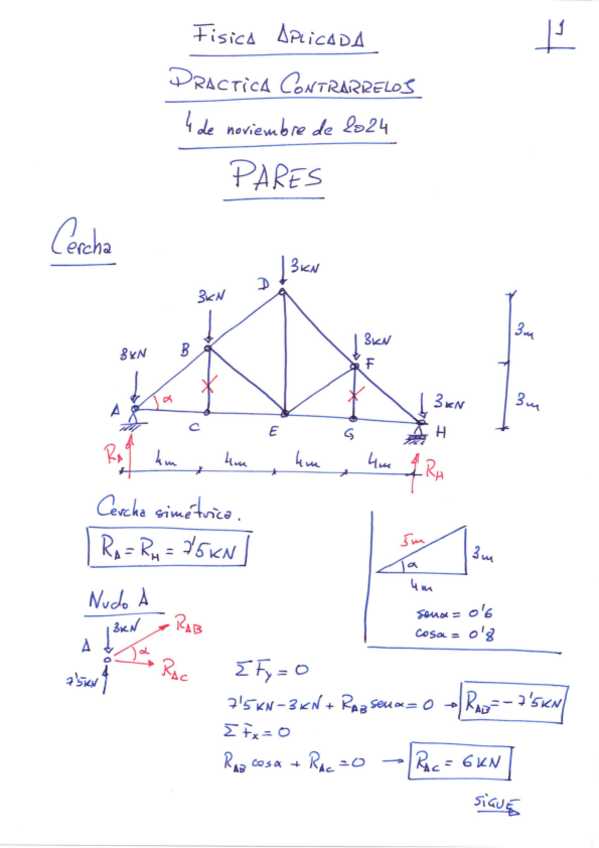 FISICA APLICADA
1
PRACTICA CONTRARRELOJ
4 de noviembre de 2024
PARES
Cercha
3KN
D
3KN
B
3KN
F
3m
3KN
A
α
C
E
G
3KN
H
3m
RA
4m
4m
4m
4m
RH
Cercha simétrica.
RA = RH = 7'5KN
5m
3m
α
4m
senα = 0'6
cosα = 0'8
Nudo A
3KN
RAB
A
α
RAC
7'5KN
ΣFy = 0
7'5KN - 3KN + RAB senα = 0 → RAB = - 7'5KN
ΣFx = 0
RAB cosα + RAC = 0 → RAC = 6KN
SIGUE